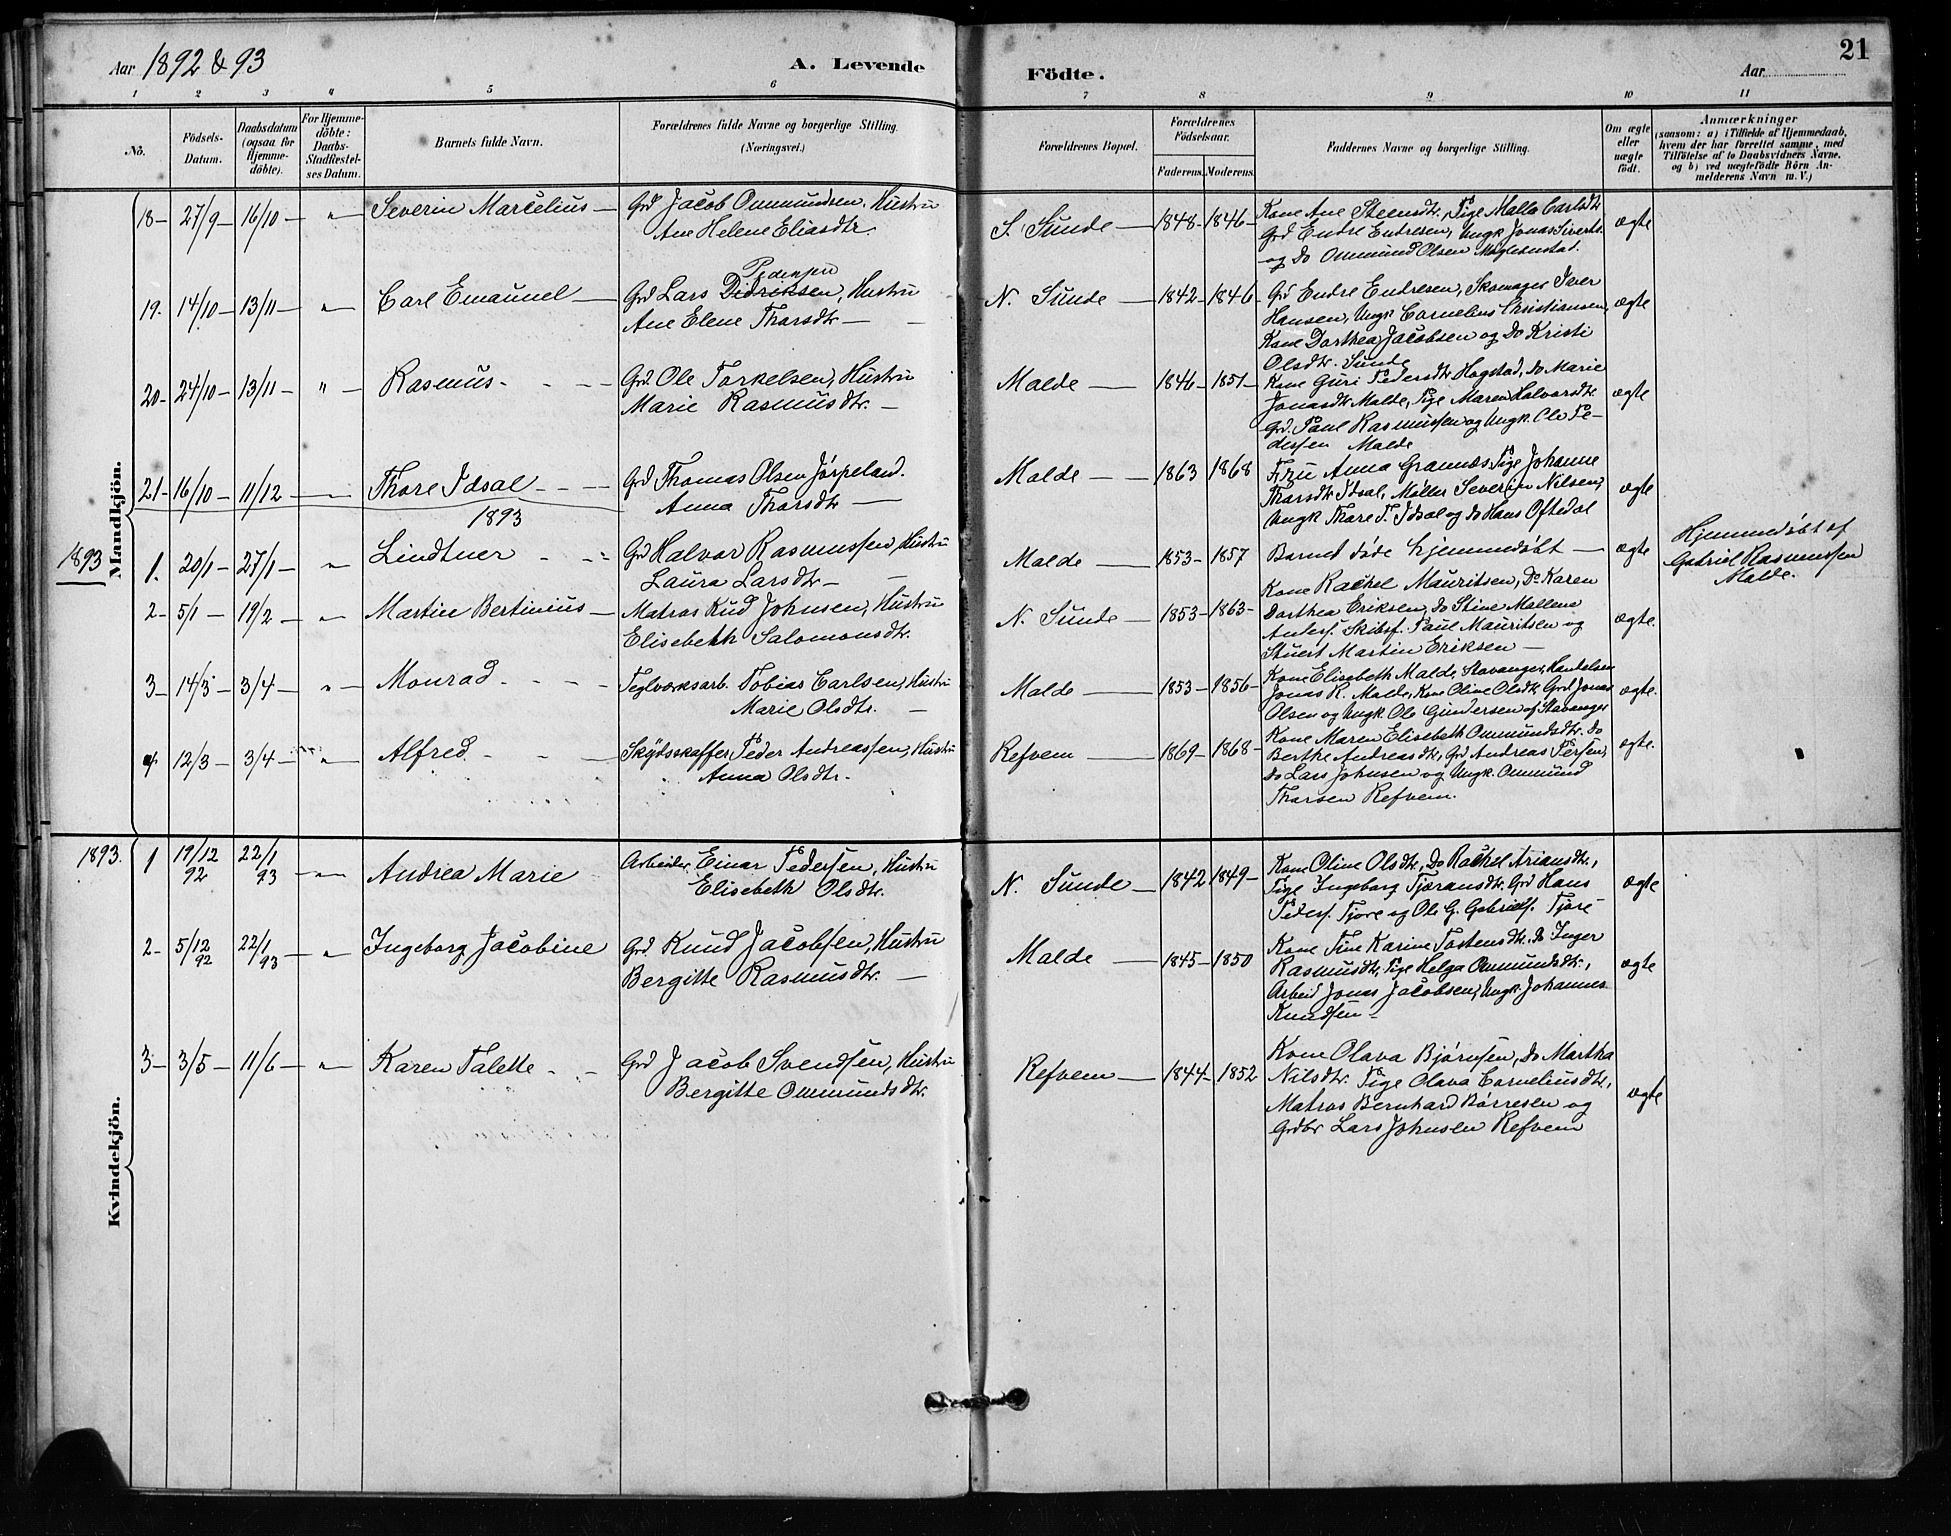 Aar 1892 & 93
A. Levende
Födte.
Aar
21
1 2 3 4 5 6 7 8 9 10 11
No.
Födsels-
Datum.
Daabsdatum
(ogsaa for
Hjemme-
döbte).
For Hjemme-
döbte:
Daabs-
Stadfæstel-
ses Datum.
Barnets fulde Navn.
Forældrenes fulde Navne og borgerlige Stilling.
(Næringsvei.)
Forældrenes Bopæl.
Forældrenes
Födselsaar.
Faderens. Moderens.
Faddernes Navne og borgerlige Stilling.
Om ægte
eller
uægte
født.
Anmærkninger
(saasom: a) i Tilfælde af Hjemmedaab,
hvem der har forrettet samme, med
Tilføielse af to Daabsvidners Navne.
og b) ved uægtefødte Börn An-
melderens Navn m. V.)
Mandkjön.
18- 27/9- 16/10- " Severin Marcelius- Grd Jacob Ommundsen, Hustru
Ane Helene Eliasdtr.
S. Sunde- 1848- 1846-
Kone Ane Steensdtr, Pige Malla Carlsdtr
Grd Endre Endresen, Ungk Jonas Siverts.
og Do Ommund Olsen
ægte
19. 14/10- 13/11- " Carl Emanuel- Grd Lars Didriksen, Hustru
Pedersen
Ane Elene Thorsdtr-
N. Sunde- 1842- 1846
Grd Endre Endresen, Skomager Iver
Hansen, Ungk Cornelius Christiansen,
Kone Dorthea Jacobsen og Do Kristi
Olsdtr. Sunde
ægte
20- 24/10- 13/11- " Rasmus- Grd. Ole Torkelsen, Hustru
Marie Rasmusdtr.-
Malde- 1846- 1851-
Kone Guri Pedersdtr Hogstad, Do Marie
Jonasdtr Malde, Pige Maren Halvorsdtr.
Grd. Paul Rasmussen og Ungk. Ole Pe-
dersen Malde
ægte
21- 16/10- 11/12- Thore Idsal- Grd Thomas Olsen Jørpeland.
Anna Thorsdtr-
Malde- 1863 1868
Fru Anna Grannes Pige Johanne
Thorsdtr Idsal, Møller Severin Nilsen,
Ungk Thore T. Idsal og Do Hans Oftedal
ægte
1893
1893
1. 20/1- 27/1- " Lindtner Grd Halvor Rasmussen, Hustru
Laura Larsdtr-
Malde- 1853- 1857
Barnet døde hjemmedøbt-
ægte
Hjemmedøbt af
Gabriel Rasmussen
Malde.
2- 5/1- 19/2- " Martin Bertinius- Matros Kud Johnsen, Hustru
Elisebeth Salomonsdtr.
N. Sunde- 1853- 1863-
Kone Rachel Mauritsen, Do Karen
Dorthea Eriksen, Do Stine Mallene
Anders. Skibsf. Paul Mauritsen og
Stuert Martin Eriksen-
ægte.
3- 14/3- 3/4- " Monrad- Teglværksarb. Tobias Carlsen, Hustru
Marie Olsdtr.-
Malde- 1853- 1856-
Kone Elisebeth Malde, Stavanger, Handelsm
Jonas R. Malde, Kone Oline Olsdtr Grd Jonas
Olsen og Ungk. Ole Gundersen af Stavanger
ægte.
4. 12/3- 3/4- " Alfred- Skydsskaffer Peder Andreassen, Hustru
Anna Olsdtr.
Refvem- 1869- 1868-
Kone Maren Elisebeth Ommundsdtr. Do
Berthe Andreasdtr, Grd Andreas Persen,
Do Lars Johnsen og Ungk. Ommund
Thorsen Refvem.
ægte.
Kvindekjön.
1893. 1 19/12 92 22/1 93 - " Andrea Marie Arbeider Einar Pedersen, Hustru
Elisebeth Olsdtr.
N. Sunde- 1842 1849-
Kone Oline Olsdtr, Do Rachel Ariansdtr,
Pige Ingeborg Tjøransdtr. Grd Hans
Peders. Tjore og Ole G. Gabriels. Tjore-
ægte
2- 5/12 92 22/1 93 - " Ingeborg Jacobine Grd. Knud Jacobsen, Hustru
Bergitte Rasmusdtr.-
Malde- 1845- 1850
Kone Tine Karine Tostensdtr. Do Inger
Rasmusdtr. Pige Helga Ommundsdtr.,
Arbeid Jonas Jacobsen, Ungk. Johannes
Knudsen-
ægte
3- 3/5- 11/6- " Karen Talette- Grd Jacob Svendsen, Hustru
Bergitte Ommundsdtr.
Refvem- 1844- 1852
Kone Olava Bjørnsen, Do Martha
Nilsdtr. Pige Olava Corneliusdtr,
Matros Bernhard Børresen og
Grdbr Lars Johnsen Refvem
ægte